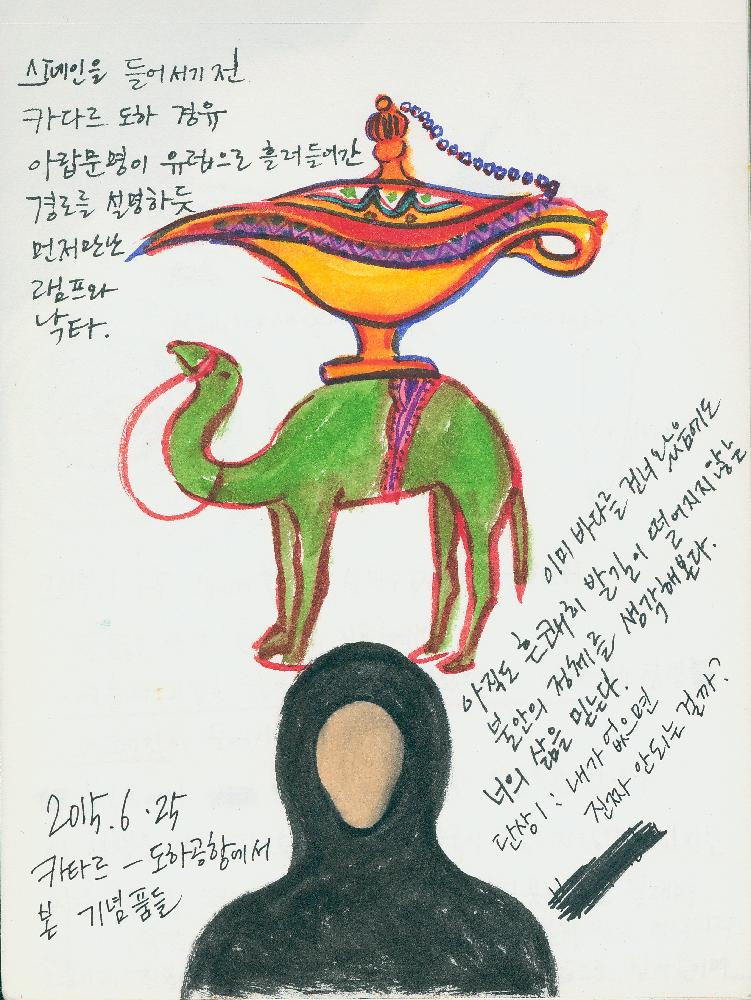 스페인을 들어서기 전
카다르 도하 경유
아랍문명이 유럽으로 흘러들어간
경로를 설명하듯
먼저 만난
램프와
낙타.
이미 바다를 건너 왔음에도
아직도 흔쾌히 발길이 떨어지지 않는
불안의 정체를 생각해본다.
너의 삶을 믿는다.
단상1 : 내가 없으면
진짜 안되는 걸까?
2015.6.25
카타르 - 도하공항에서
본 기념품들